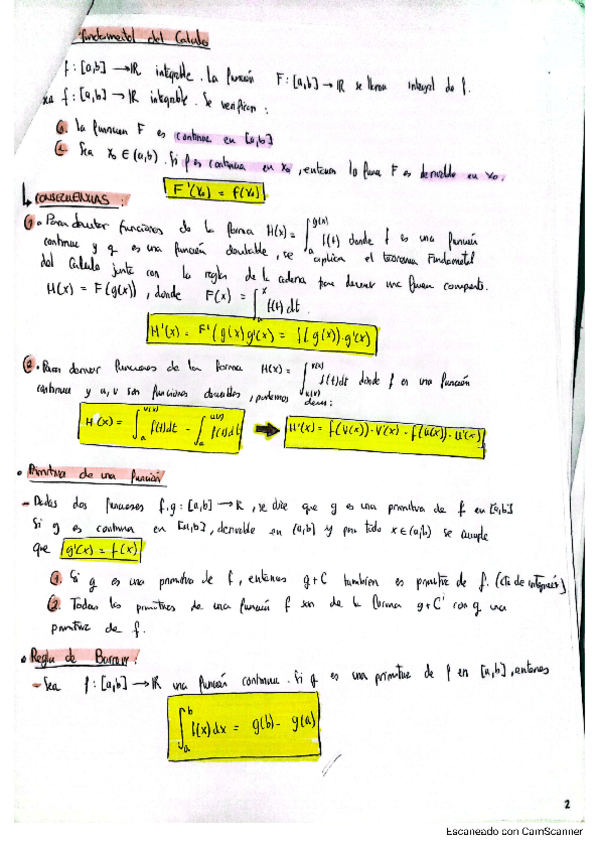 fundamental del Calculo
f: [a,b] → ℝ integrable. La función F: [a,b] → ℝ se llama integral de f.
f: [a,b] → ℝ integrable. Se verifican:
1. la función F es continua en [a,b]
2. Sea x₀ ∈ (a,b). Si f es continua en x₀, entonces la F es derivable en x₀.
F'(x₀) = f(x₀)
↳ CONSECUENCIAS:
1. Para derivar funciones de la forma H(x) = ∫ₐ^{g(x)} f(t) donde f es una función
continua y g es una función derivable, se aplica el teorema Fundamental
del Calculo junto con la regla de la cadena para derivar una compuesta.
H(x) = F(g(x)), donde F(x) = ∫ₐˣ f(t) dt.
H'(x) = F'(g(x) g'(x) = f(g(x))·g'(x)
2. Para derivar funciones de la forma H(x) = ∫_{u(x)}^{v(x)} f(t)dt donde f es una función
continua y u, v son funciones derivables, podemos
H(x) = ∫ₐ^{v(x)} f(t)dt - ∫ₐ^{u(x)} f(t)dt → H'(x) = f(v(x))·v'(x) - f(u(x))·u'(x)
• Primitiva de una función
- Dadas dos funciones f, g: [a,b] → ℝ, se dice que g es una primitiva de f en [a,b]
Si g es continua en [a,b], derivable en (a,b) y para todo x ∈ (a,b) se cumple
que g'(x) = f(x)
1. Si g es una primitiva de f, entonces g+C tambien es primitiva de f. (cte de integración)
2. Todas las primitivas de una función f son de la forma g+C con g una
primitiva de f.
• Regla de Barrow:
- Sea f: [a,b] → ℝ una función continua. Si g es una primitiva de f en [a,b], entonces
∫ₐᵇ f(x)dx = g(b) - g(a)
2
Escaneado con CamScanner